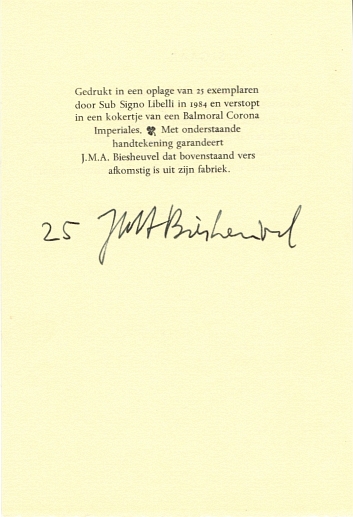 Gedrukt in een oplage van 25 exemplaren
door Sub Signo Libelli in 1984 en verstopt
in een kokertje van een Balmoral Corona
Imperiales. Met onderstaande
handtekening garandeert
J.M.A. Biesheuvel dat bovenstaand vers
afkomstig is uit zijn fabriek.
25 JMABiesheuvel